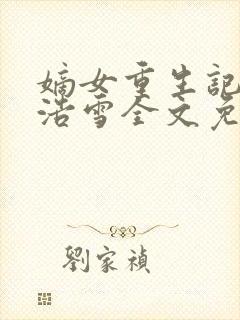 嫡女重生記
浩雪全文免
劉家禎